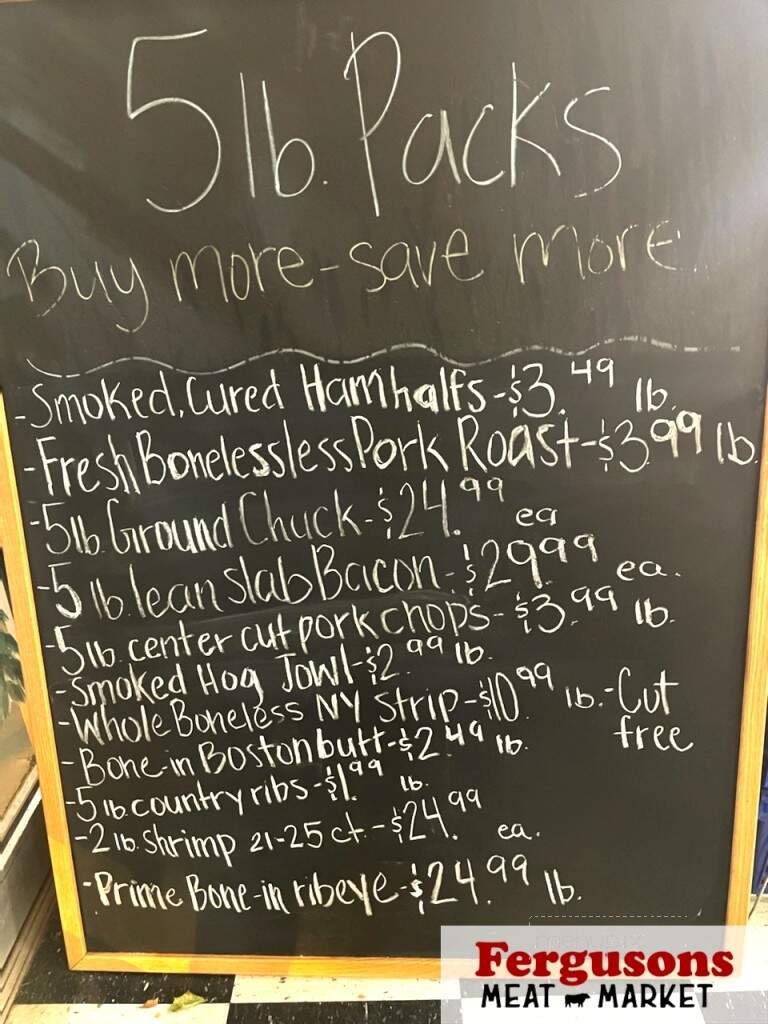 5 lb. Packs
Buy more-save more
-Smoked, Cured Ham halfs-$3.49 lb.
-Fresh Bonelessless Pork Roast-$3.99 lb.
-5lb. Ground Chuck-$24.99 ea
-5 lb. lean slab Bacon-$29.99 ea.
-5 lb. center cut pork chops-$3.99 lb.
-Smoked Hog Jowl-$2.99 lb.
-Whole Boneless NY Strip-$10.99 lb.-Cut free
-Bone-in Boston butt-$2.49 lb.
-5 lb. country ribs-$1.99 lb.
-2 lb. Shrimp 21-25 ct.-$24.99 ea.
-Prime Bone-in ribeye-$24.99 lb.
Fergusons
MEAT MARKET